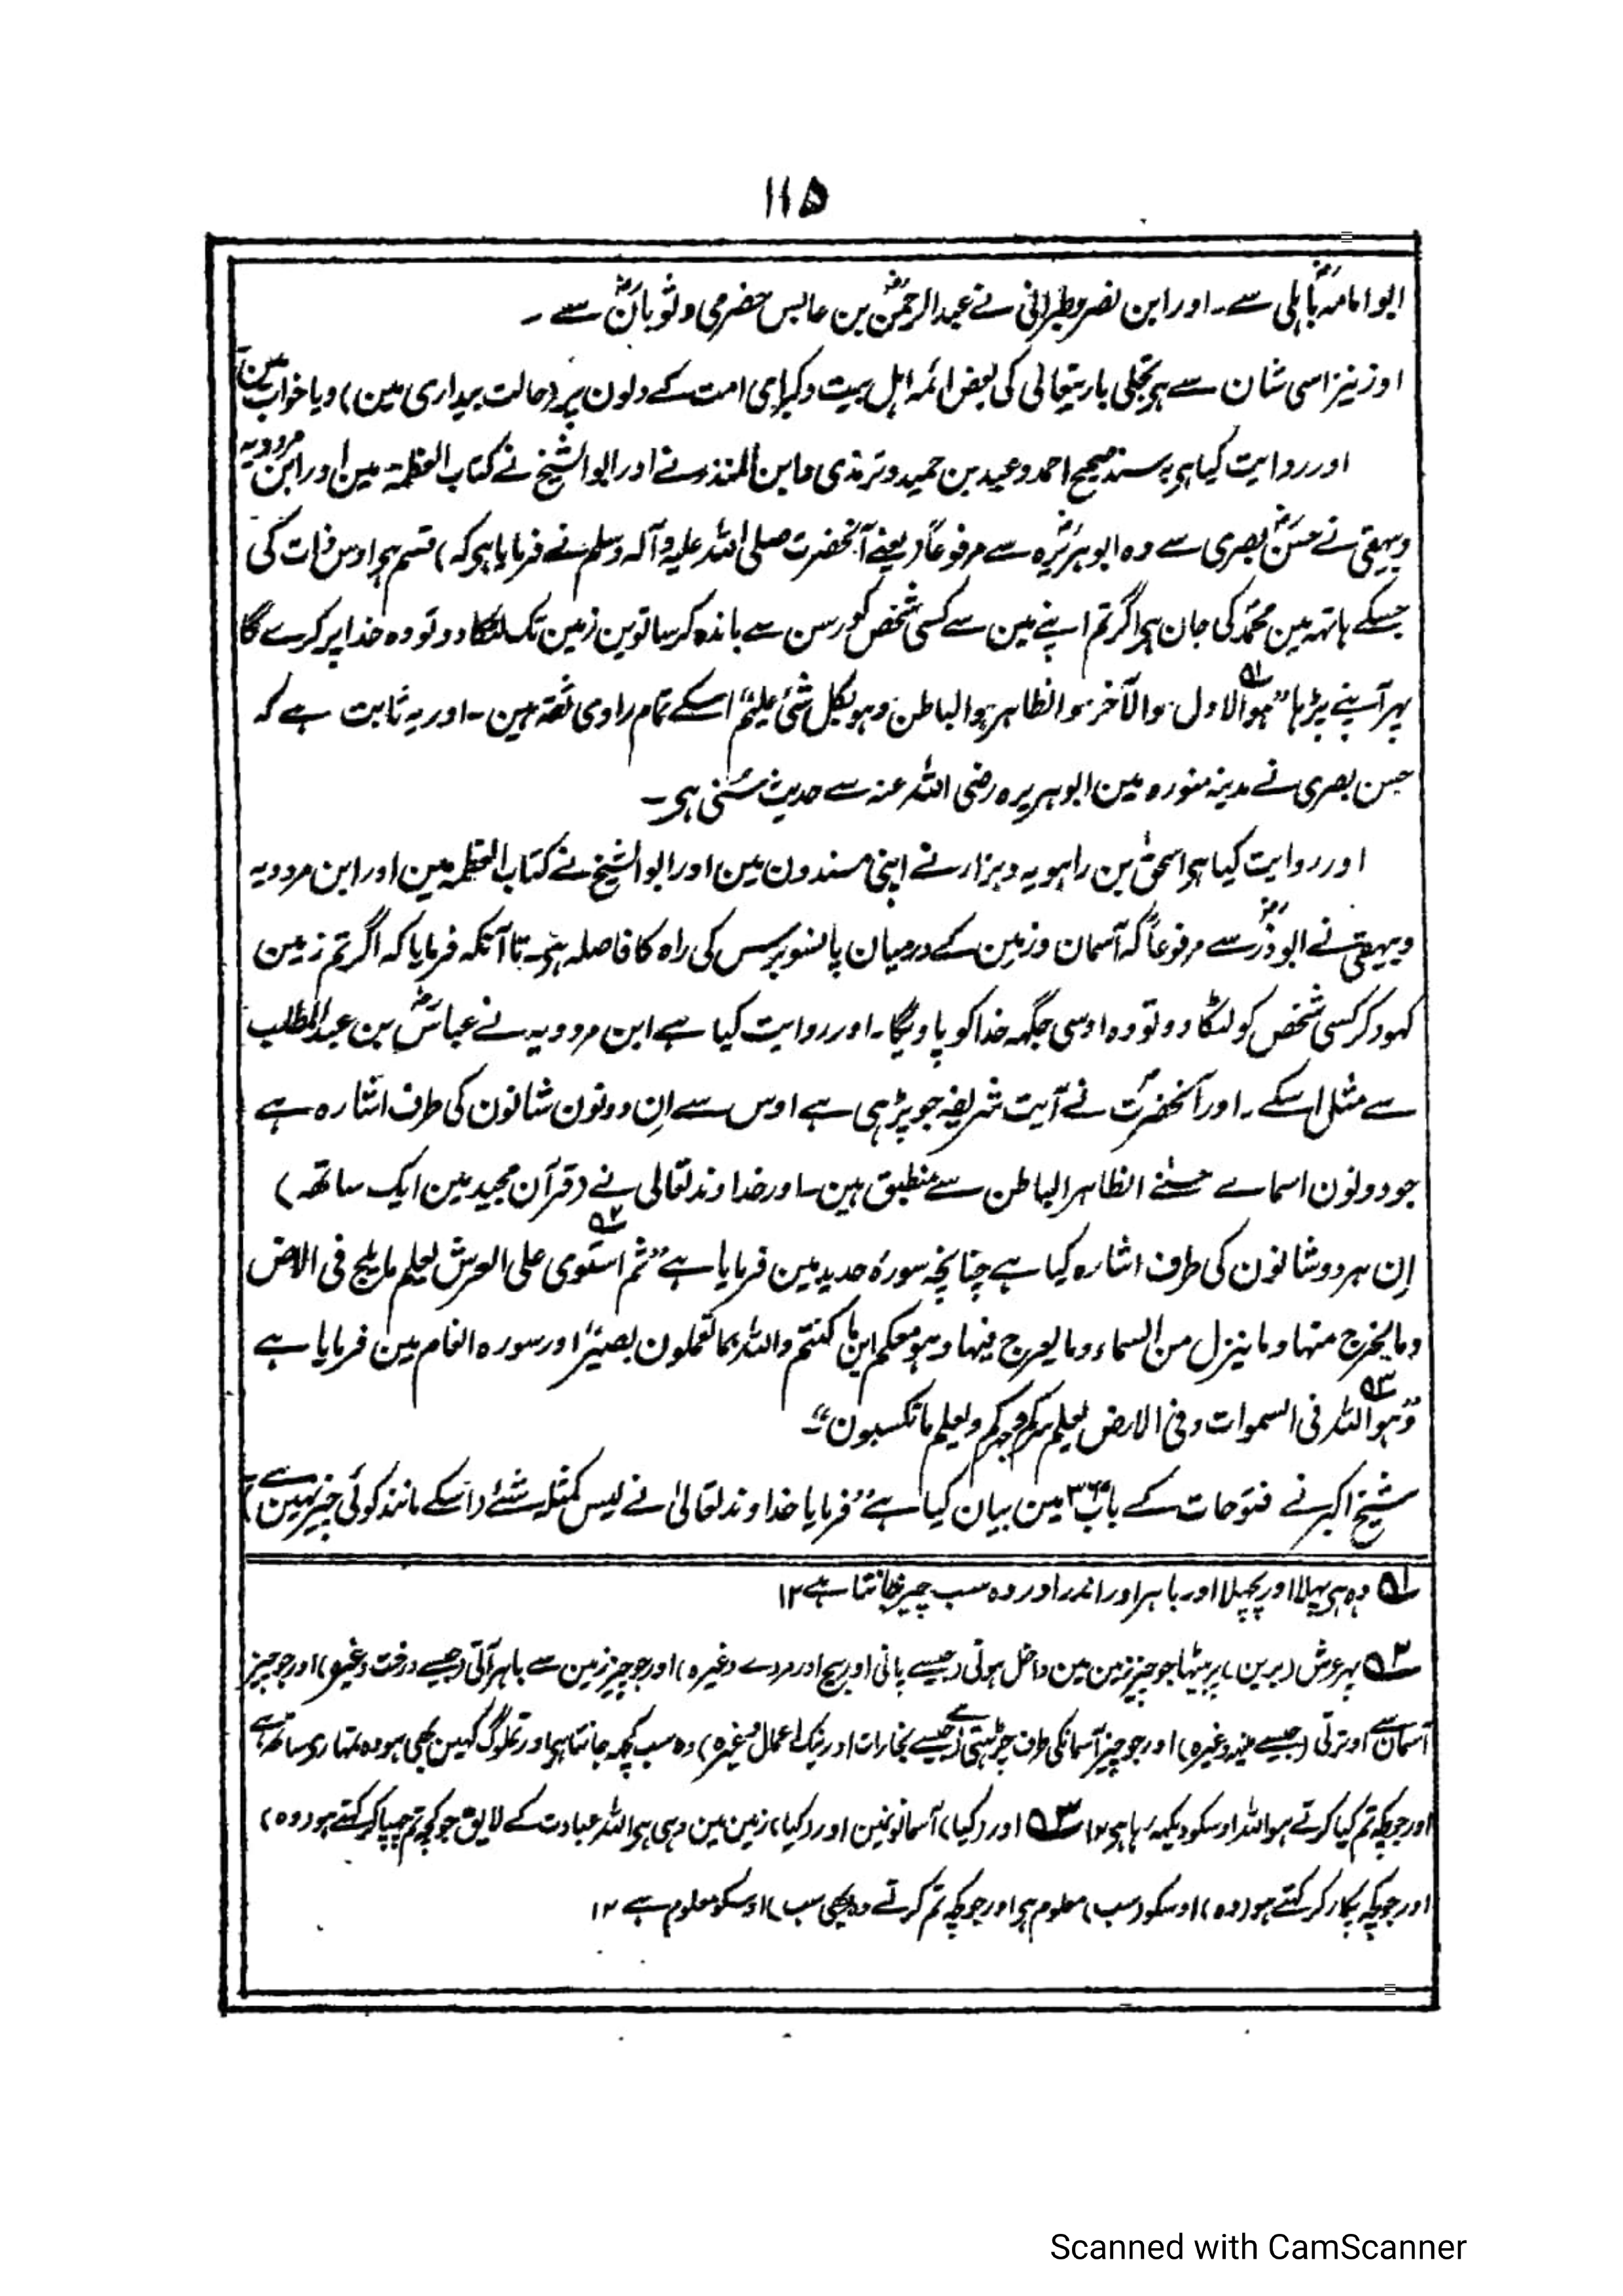 ۱۱۵
ابو امامہ باہلی سے۔ اور ابن نصر و طبرانی نے عبد الرحمن بن عابس حضرمی و ثوبان سے ۔
اور نیز اسی شان سے ہو تجلی باریتعالی کی بعض ائمہ اہل بیت و کبرای امت کے دلون پر (حالت بیداری مین) ویا خواب مین
اور روایت کیا ہو بہ سند صحیح احمد و عبد بن حمید و ترمذی و ابن المنذر نے اور ابو الشیخ نے کتاب العظمۃ مین اور ابن مردویہ
وبیہقی نے حسن بصری سے وہ ابو ہریرہ سے مرفوعاً (یعنے آنحضرت صلی اللہ علیہ و آلہ وسلم نے فرمایا ہی کہ) قسم ہو اوس ذات کی
جسکے ہاتہہ مین محمد کی جان ہو اگر تم اپنے مین سے کسی شخص کو رسن سے باندہ کر ساتوین زمین تک لٹکا دو تو وہ خدا پر کرے گا
پہر آپنے پڑہا ”ہو الاول والآخر والظاہر والباطن وہو بکل شئ علیم“ اسکے تمام راوی ثقہ ہین ۔ اور یہ ثابت ہے کہ
حسن بصری نے مدینہ منورہ مین ابو ہریرہ رضی اللہ عنہ سے حدیث سُنی ہی ۔
اور روایت کیا ہو اسحٰق بن راہویہ و بزار نے اپنی مسندون مین اور ابو الشیخ نے کتاب العظمہ مین اور ابن مردویہ
وبیہقی نے ابو ذر سے مرفوعاً کہ آسمان و زمین کے درمیان پانسو برس کی راہ کا فاصلہ ہے ۔ تا آنکہ فرمایا کہ اگر تم زمین
کہود کر کسی شخص کو لٹکا دو تو وہ اوسی جگہہ خدا کو پاویگا ۔ اور روایت کیا ہے ابن مردویہ نے عباس بن عبد المطلب
سے مثل اسکے ۔ اور آنحضرت نے آیت شریفہ جو پڑہی ہے اوس سے اِن دونون شانون کی طرف اشارہ ہے
جو دونون اسماے حسنے الظاہر الباطن سے منطبق ہین ۔ اور خداوند تعالی نے (قرآن مجید مین ایک ساتھہ)
اِن ہر دو شانون کی طرف اشارہ کیا ہے چنانچہ سورۂ حدید مین فرمایا ہے ”ثم استوی علی العرش یعلم ما یلج فی الارض
وما یخرج منہا وما ینزل من السماء وما یعرج فیہا وہو معکم این ما کنتم واللہ بما تعملون بصیر“ اور سورہ انعام مین فرمایا ہے
”وہو اللہ فی السموات وفی الارض یعلم سرکم وجہرکم ویعلم ما تکسبون“ ۔
شیخ اکبر نے فتوحات کے باب مین بیان کیا ہے ”فرمایا خداوند تعالیٰ نے لیس کمثلہ شئے (اسکے مانند کوئی چیز نہین ہے)
۱ وہ ہی پہلا اور پچھلا اور باہر اور اندر اور وہ سب چیز جانتا ہے ۱۲
۲ پہر عرش (برین) پر بیٹھا جو چیز زمین مین داخل ہوتی (جیسے پانی اور بیج اور مردے وغیرہ) اور جو چیز زمین سے باہر آتی (جیسے درخت وغیرہ) اور جو چیز
آسمان سے اوترتی (جیسے مینہہ وغیرہ) اور جو چیز آسمانکی طرف چڑہتی ہے (جیسے بخارات اور نیک اعمال وغیرہ) وہ سب کچہہ جانتا ہو اور تملوگ کہین بھی ہو وہ تمہاری ساتہہ ہے
اور جو کچہہ تم کیا کرتے ہو اللہ اوسکو دیکہہ رہا ہی ۱۲ ۳ اور (کیا) آسمانونمین اور (کیا) زمین مین وہی ہی اللہ عبادت کے لایق جو کچہہ تم چھپا کر کہتے ہو (وہ)
اور جو کچہہ پکار کر کہتے ہو (وہ) اوسکو (سب) معلوم ہی اور جو کچہہ تم کرتے وہ بھی سب) اوسکو معلوم ہے ۱۲
Scanned with CamScanner